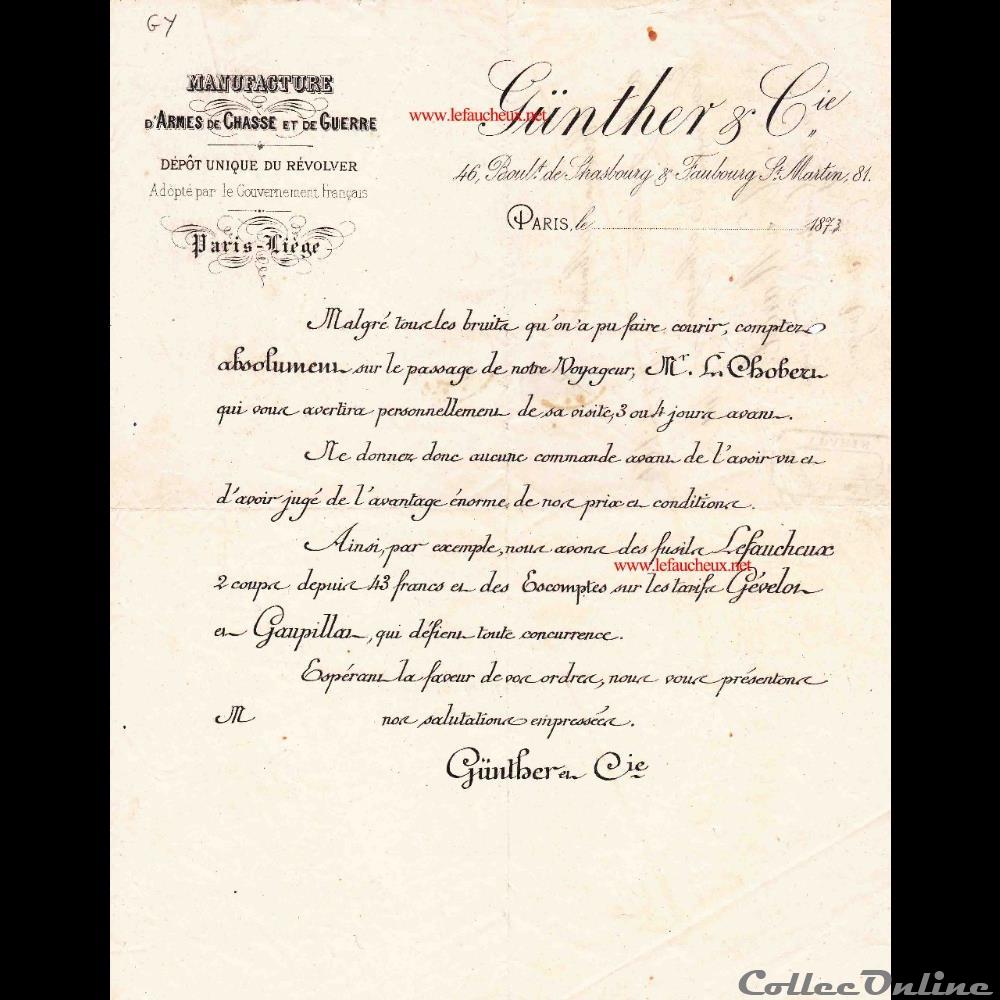 GY
MANUFACTURE
D'ARMES DE CHASSE ET DE GUERRE
DÉPÔT UNIQUE DU RÉVOLVER
Adopté par le Gouvernement français
Paris-Liège
www.lefaucheux.net
Günther & Cie
46, Boult. de Strasbourg & Faubourg St. Martin, 81.
PARIS, le 1873
Malgré tous les bruits qu'on a pu faire courir, comptez
absolument sur le passage de notre Voyageur, Mr. Chobert
qui vous avertira personnellement de sa visite, 3 ou 4 jours avant.
Ne donnez donc aucune commande avant de l'avoir vu et
d'avoir jugé de l'avantage énorme de nos prix et conditions.
Ainsi, par exemple, nous avons des fusils Lefaucheux
www.lefaucheux.net
2 coups depuis 43 francs et des Escomptes sur les tarifs Gévelot
et Gaupillat, qui défient toute concurrence.
Espérant la faveur de vos ordres, nous vous présentons
M nos salutations empressées.
Günther et Cie
CollecOnline